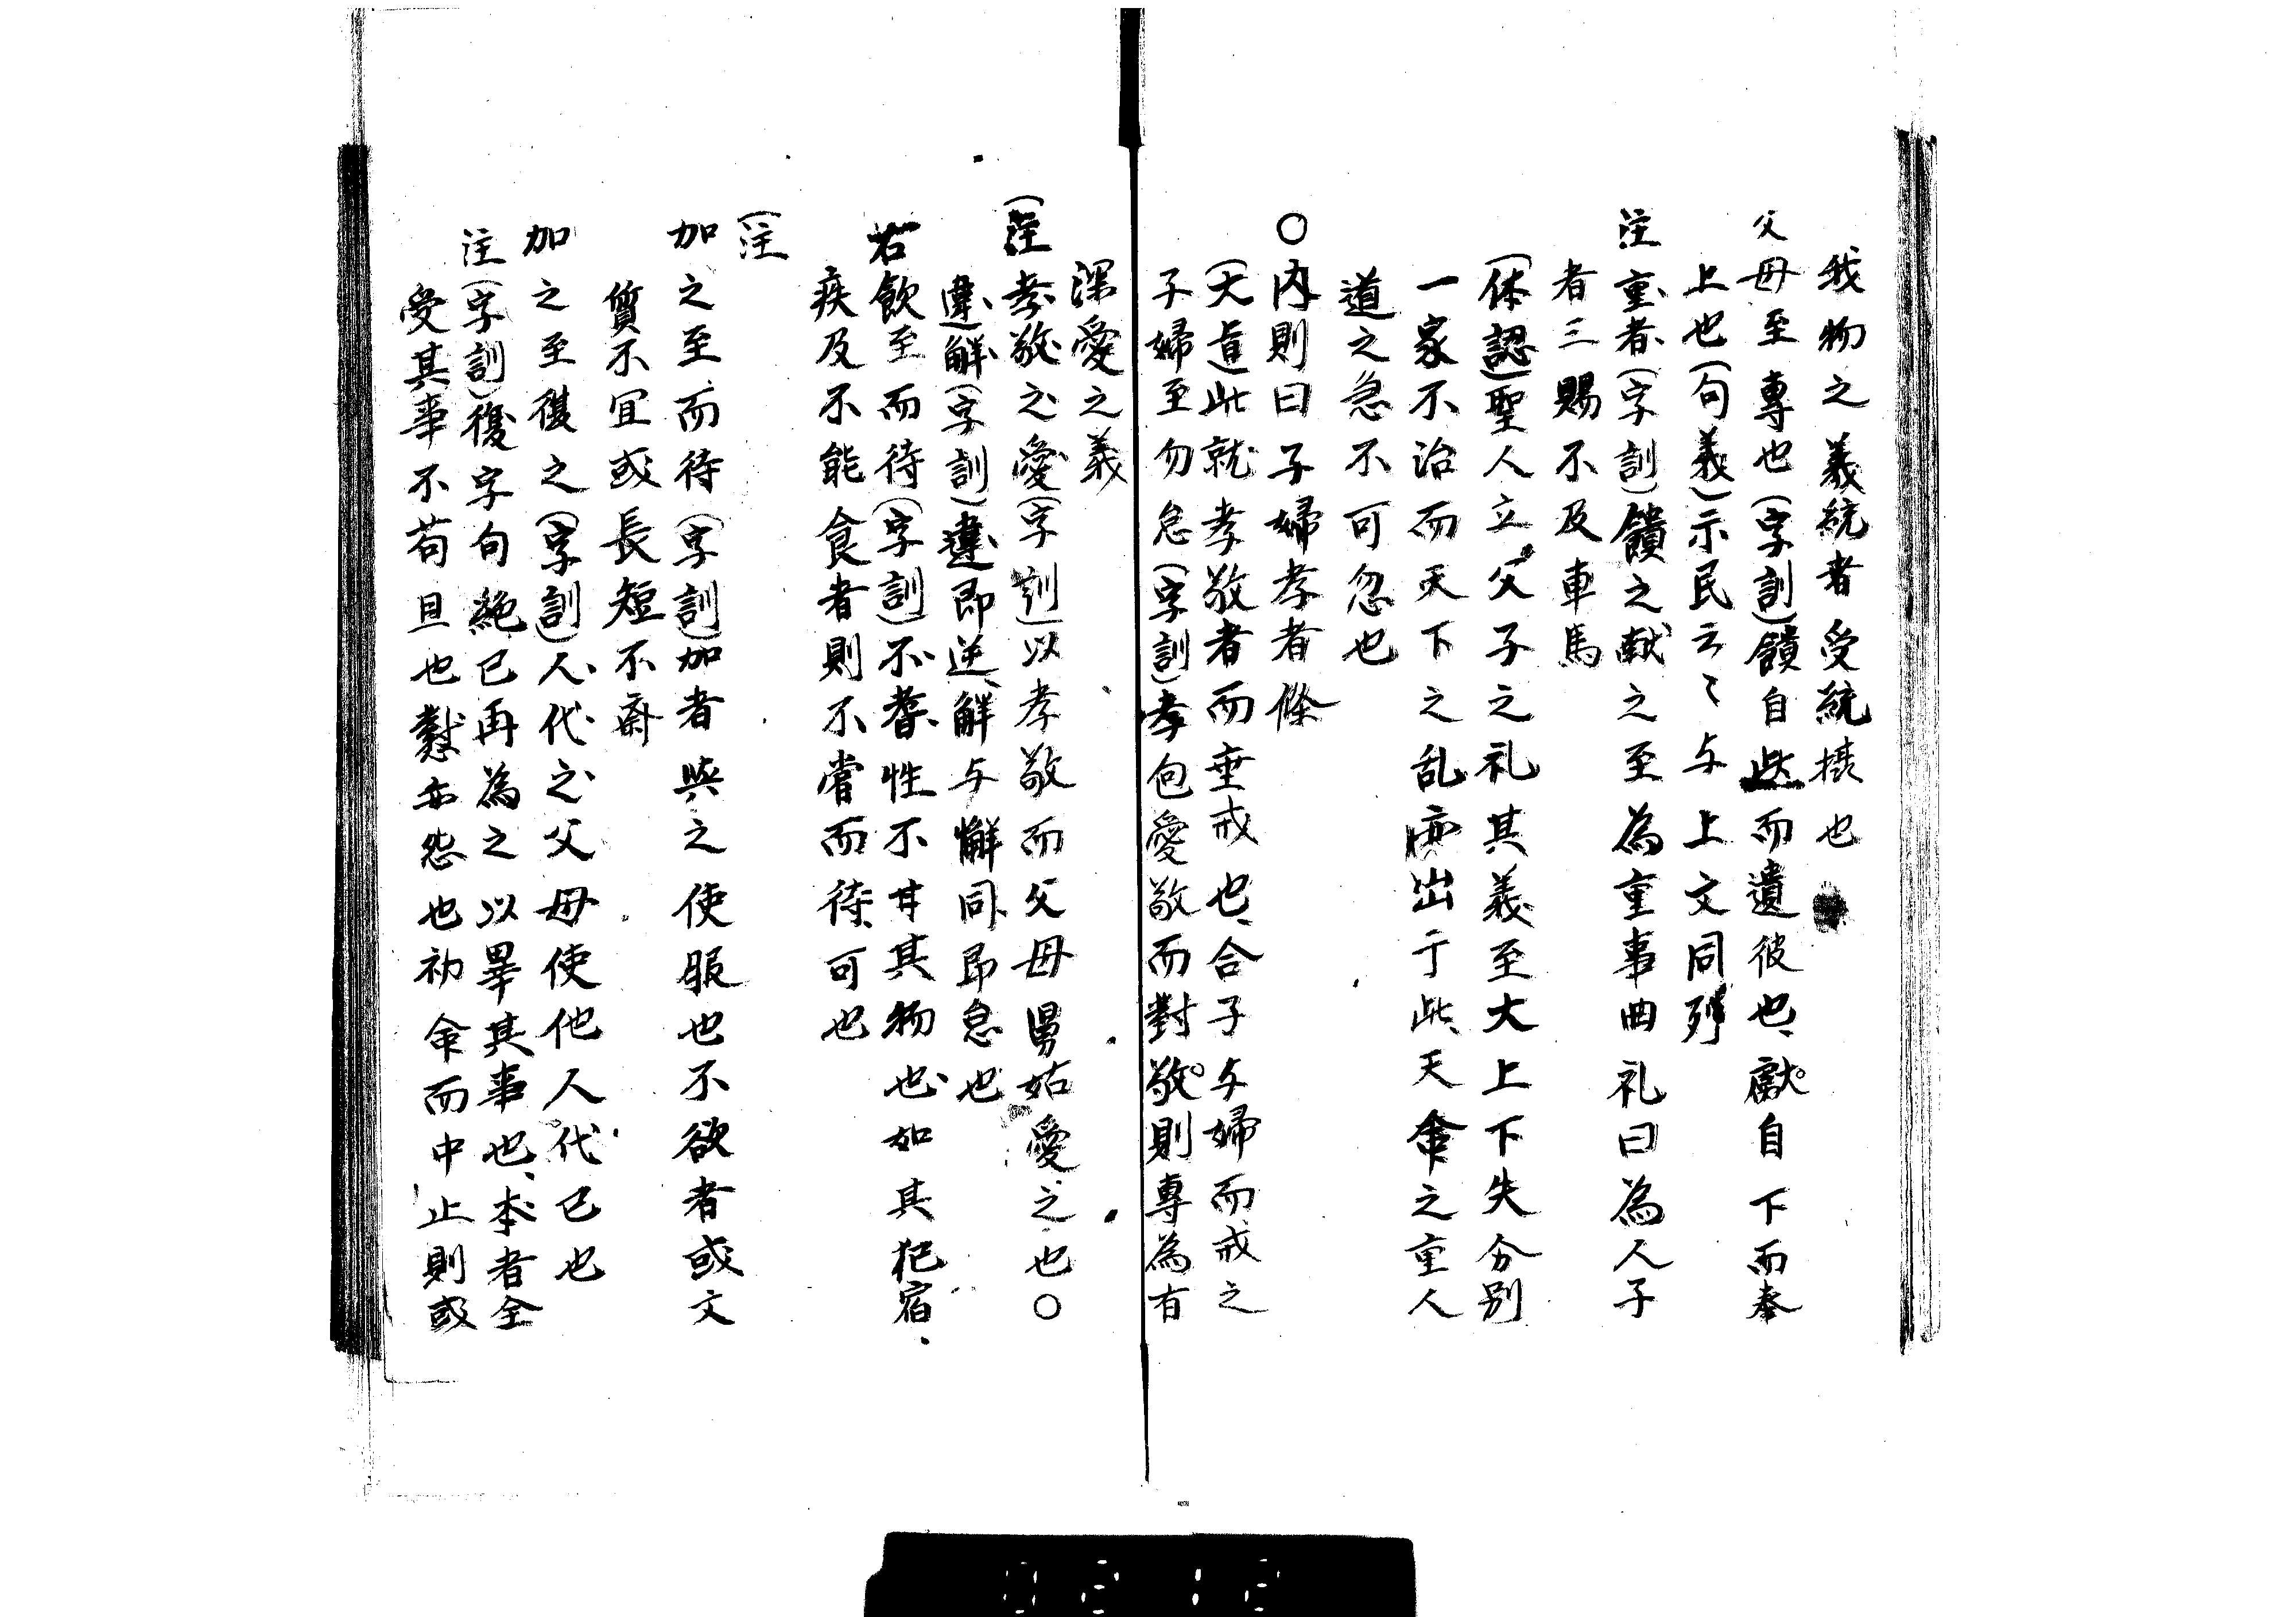 我物之義統者受統攝也
父母至專也（字訓）饋自此而遺彼也、獻自下而奉
上也（句義）示民云〻与上文同列
注重者（字訓）饋之献之至為重事曲礼曰為人子
者三賜不及車馬
（体認）聖人立父子之礼其義至大上下失分別
一家不治而天下之乱亦出于此、天命之重人
道之急不可忽也
○内則曰子婦孝者條
（大旨）此就孝敬者而垂戒也、合子与婦而戒之
子婦至勿怠（字訓）孝包愛敬而對敬則專為有
深愛之義
（注孝敬之愛（字訓）以孝敬而父母舅姑愛之也○
違解（字訓）違即逆、解与懈同即怠也
若飲至而待（字訓）不嗜性不甘其物也如其犯宿、
疾及不能食者則不嘗而待可也
（注
加之至而待（字訓）加者與之使服也不欲者或文
質不宜或長短不齊
加之至復之（字訓）人代之父母使他人代己也
注（字訓）復字句絶已再為之以畢其事也、本者全
受其事不苟且也懟亦怨也初命而中止則或